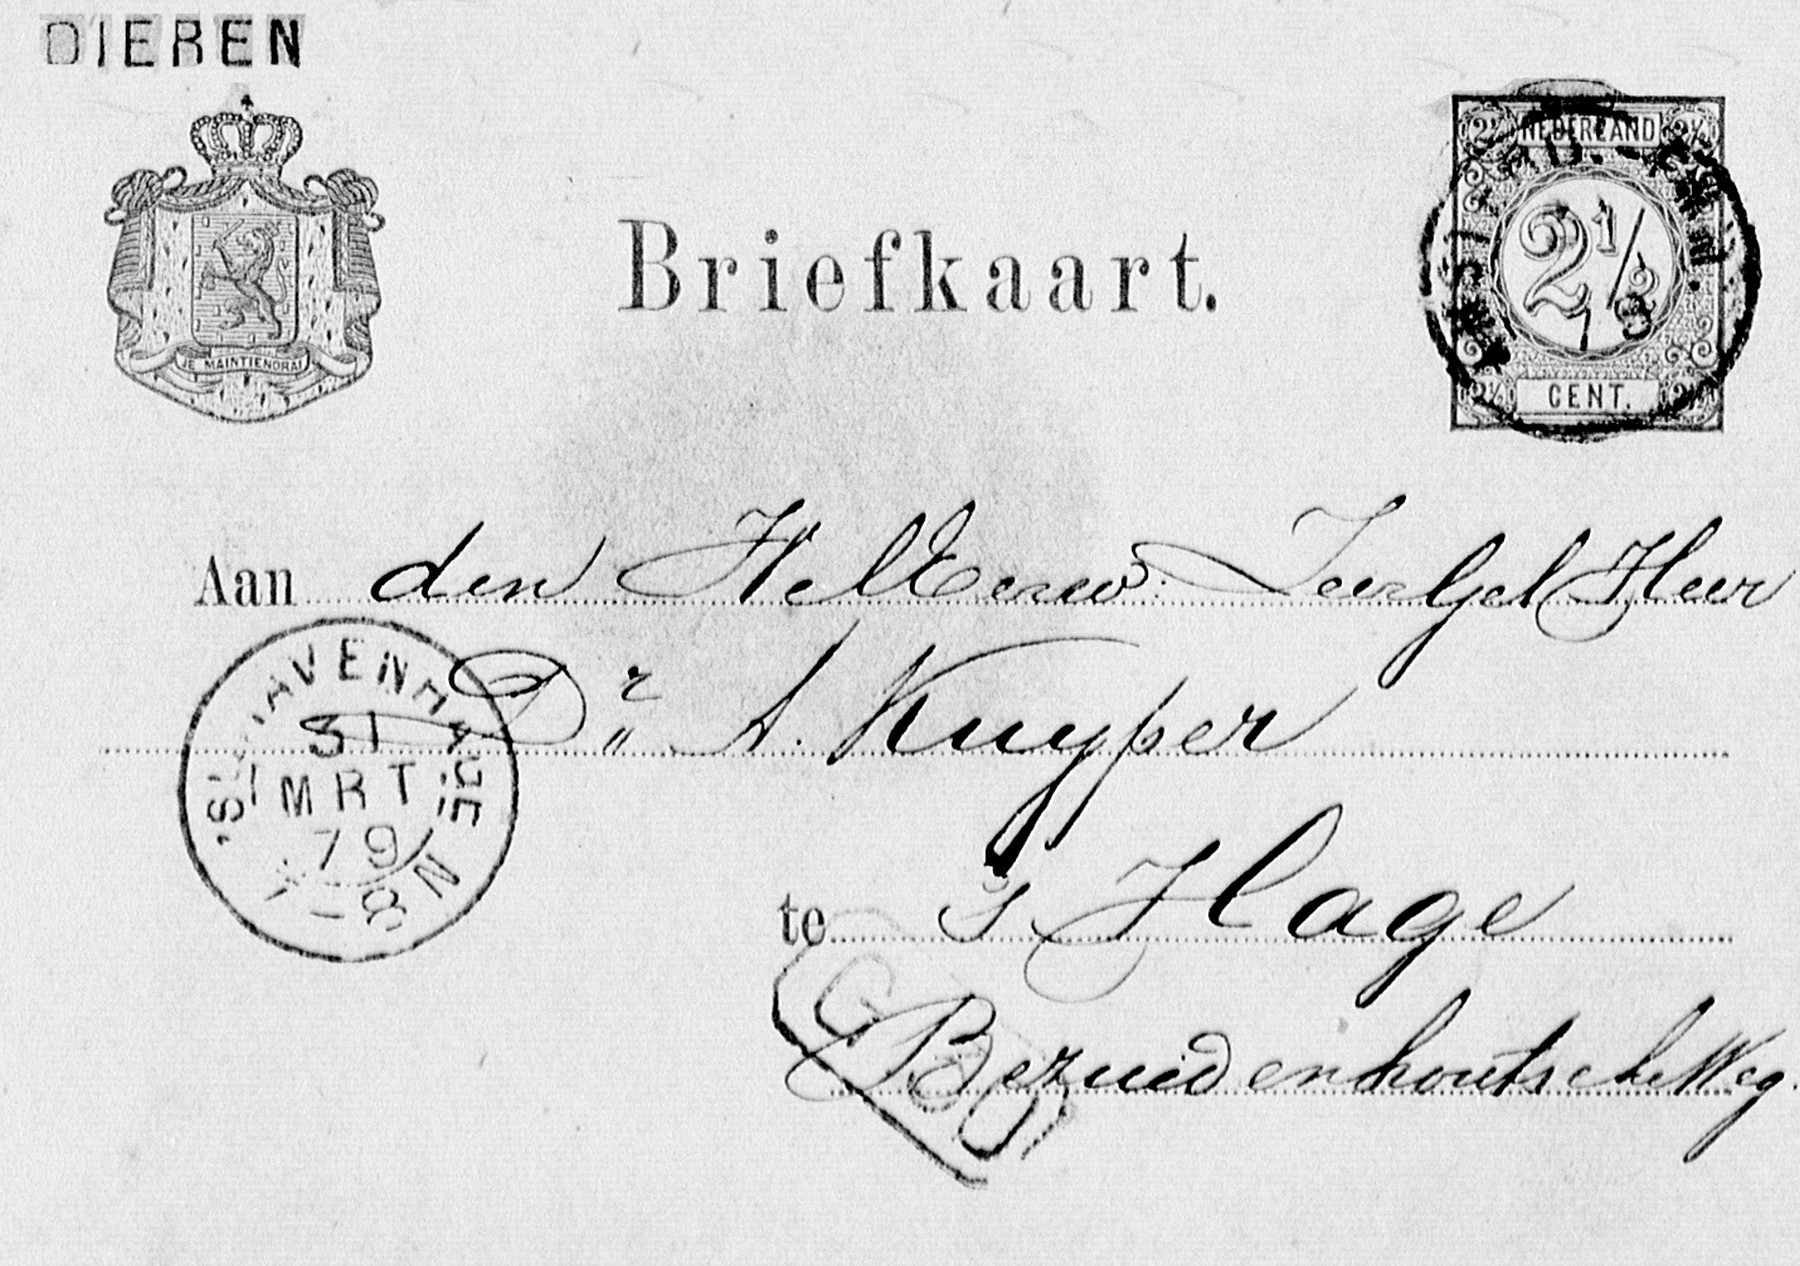 DIEREN
JE MAINTIENDRAI
Briefkaart.
NEDERLAND
2½
CENT.
Aan den WelEerw. Zeergel Heer
Dr. A. Kuyper
te 's Hage
Bezuidenhoutsche Weg.
'SGRAVENHAGE
31
MRT
79
8 N